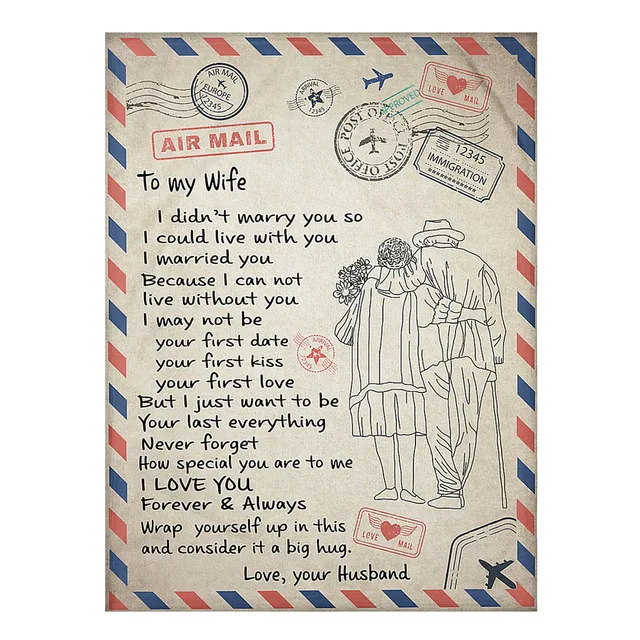 AIR MAIL
EUROPE
12345
ARRIVAL
12345
APPROVED
LOVE MAIL
POST OFFICE POST OFFICE
12345
IMMIGRATION
AIR MAIL
To my Wife
I didn't marry you so
I could live with you
I married you
Because I can not
live without you
I may not be
your first date
your first kiss
your first love
But I just want to be
Your last everything
Never forget
How special you are to me
I LOVE YOU
Forever & Always
Wrap yourself up in this
and consider it a big hug.
Love, your Husband
ARRIVAL
LOVE MAIL